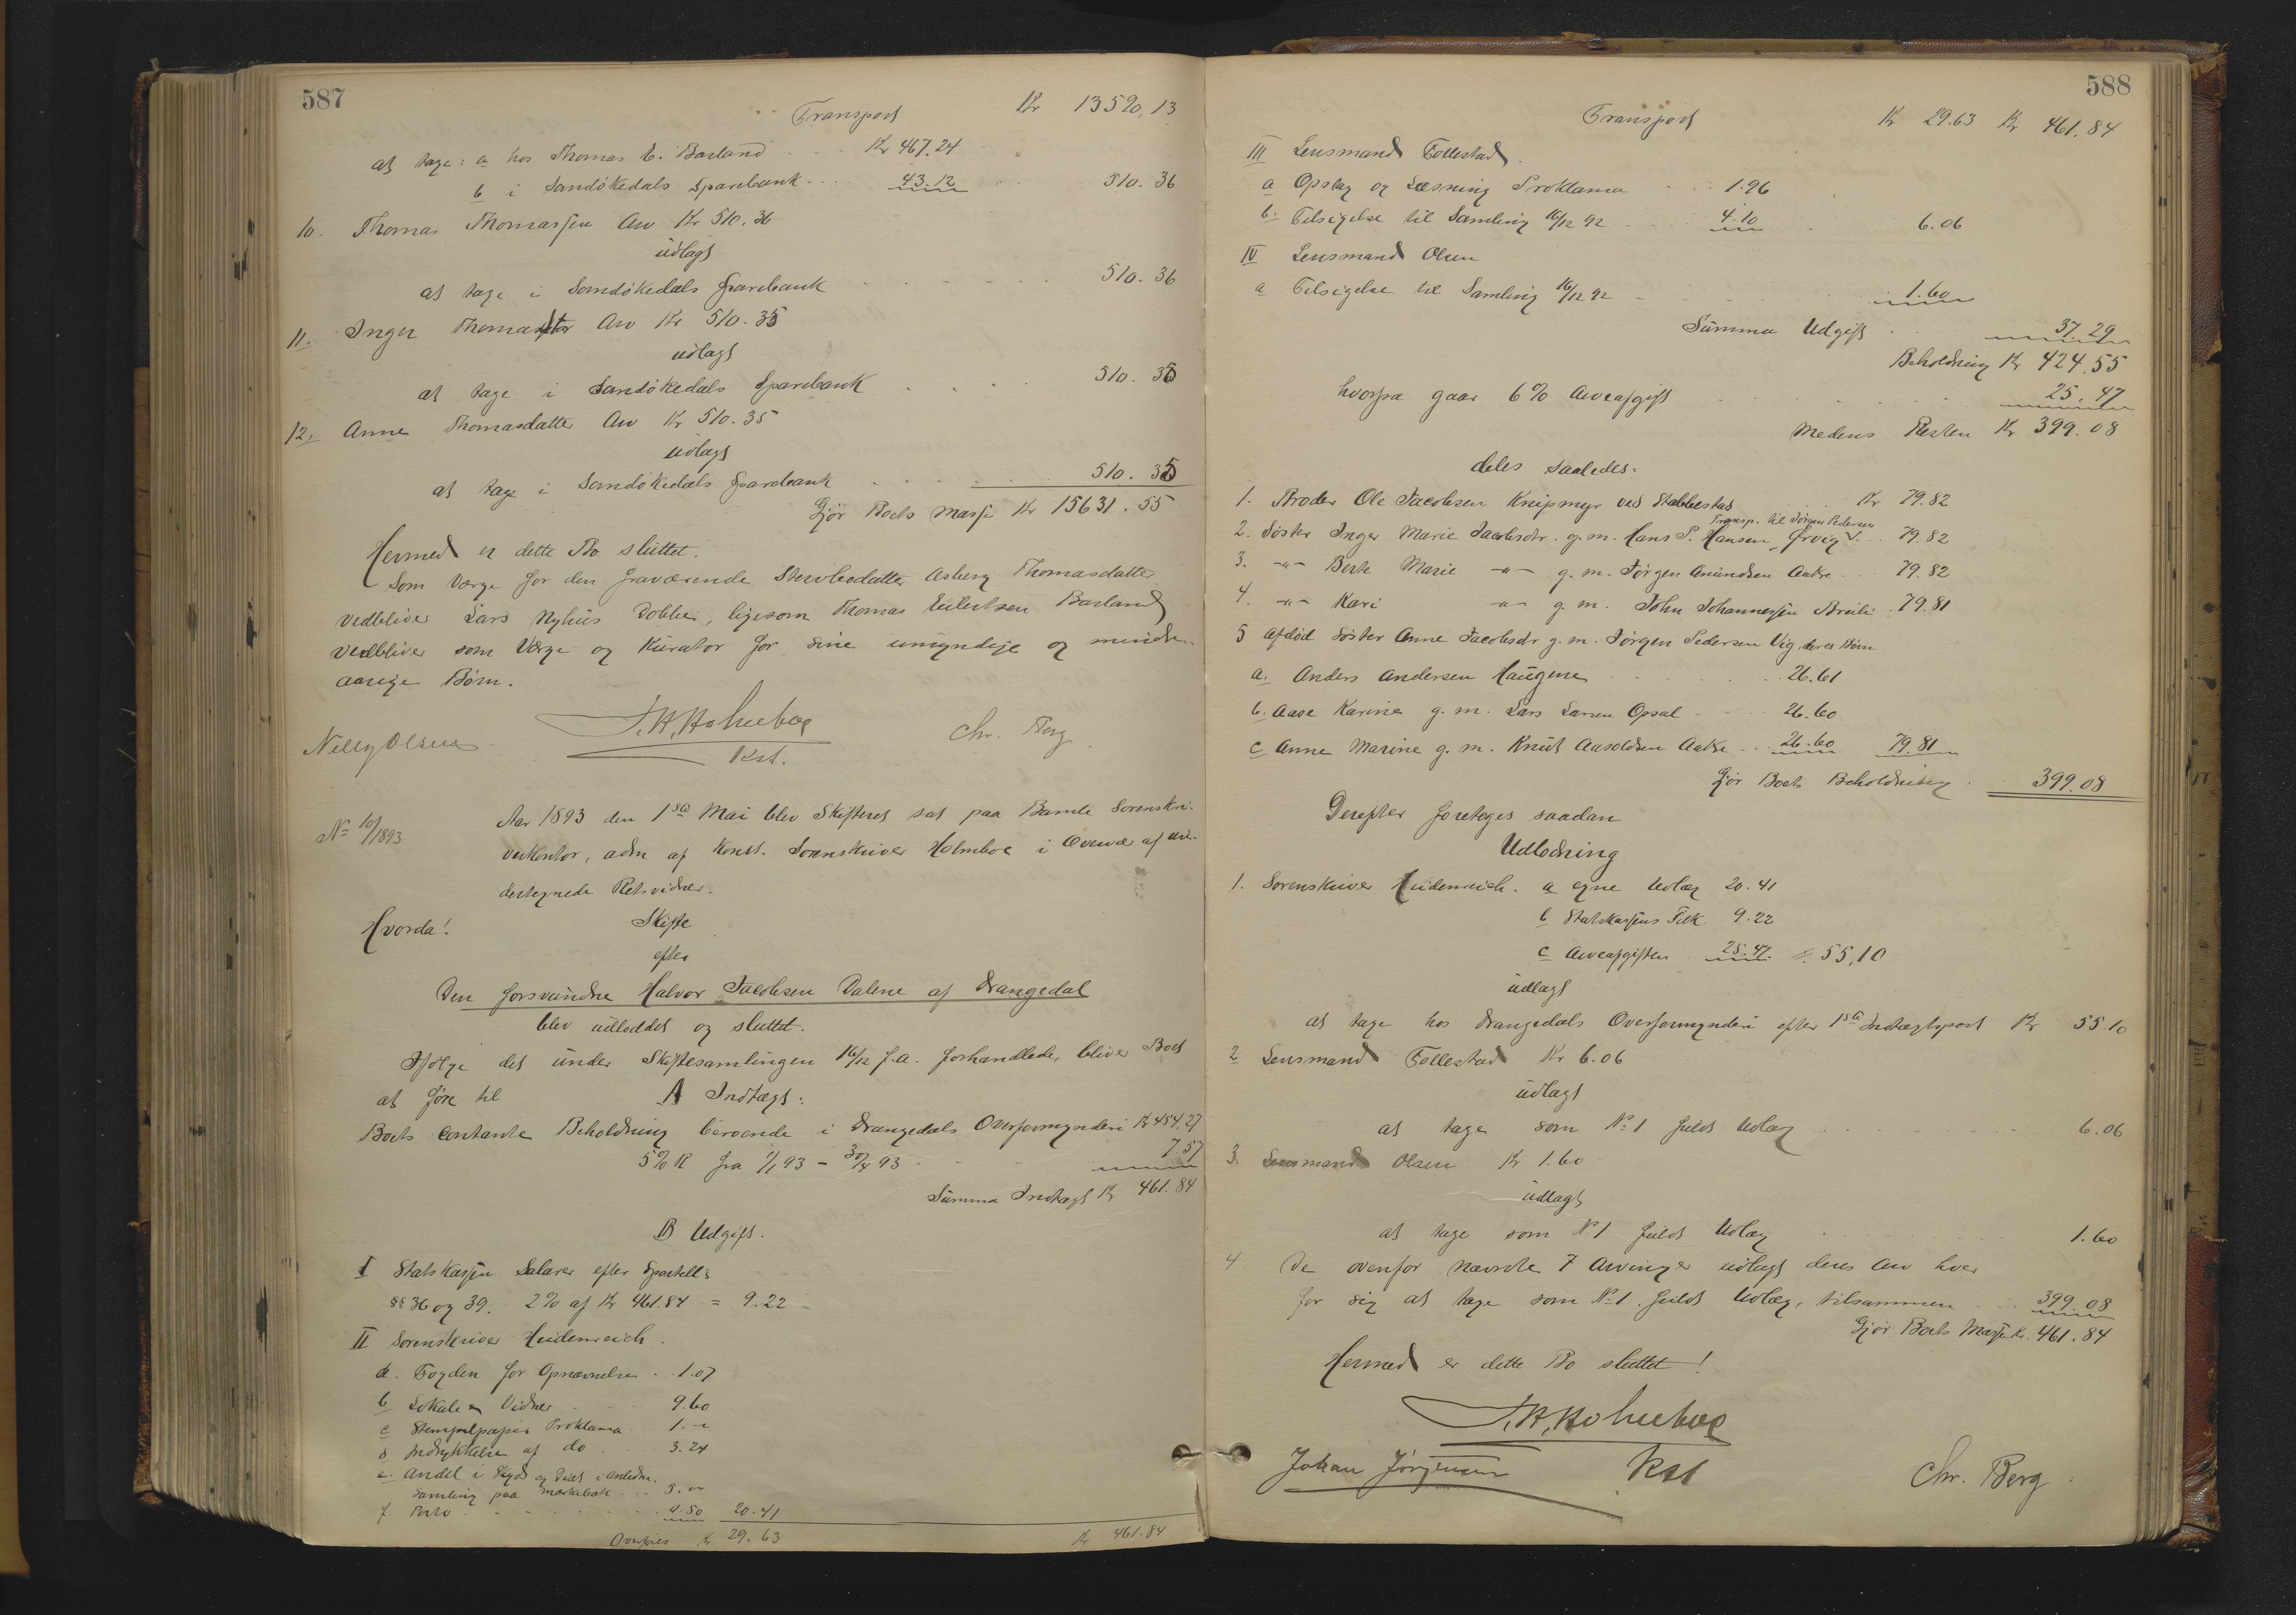 587
Transport Kr 13590,13
at tage: a hos Thomas E. Barland Kr 467.24
b i Sandøkedals Sparebank 43.12 510.36
10. Thomas Thomassen Arv Kr 510.36
udlagt
at tage i Sandøkedals Sparebank 510.36
11. Inger Thomasdtr Arv Kr 510.35
udlagt
at tage i Sandøkedals Sparebank 510.35
12. Anne Thomasdatter Arv Kr 510.35
udlagt
at tage i Sandøkedals Sparebank 510.35
Gjør Boets Masse Kr 15631.55
Hermed er dette Bo sluttet.
Som Værge for den fraværende Stervbodatter Asberg Thomasdatter
vedbliver Lars Nyhus Dobbe, ligesom Thomas Eilertsen Barland
vedbliver som Værge og Kurator for sine umyndige og mindre-
aarige Børn.
Nelly Olsen J.H.Holmboe Chr. Berg
Kst.
No 10/1893 Aar 1893 den 1ste Mai blev Skifteret sat paa Bamle Sorenskri-
verkontor, adm af Konst. Sorenskriver Holmboe i Overvær af un-
dertegnede Retsvidner.
Hvorda! Skifte
efter
Den forsvundne Halvor Jacobsen Dalene af Drangedal
blev udloddet og sluttet.
Ifølge det under Skiftesamlingen 16/12 f.a. forhandlede, bliver Boet
at føre til A Indtægt:
Boets contante Beholdning beroende i Drangedals Overformynderi Kr 454.27
5% R fra 1/1 93 - 30/4 93 7.57
Summa Indtægt Kr 461.84
B Udgift.
I Statskassen Salarer efter Sportell:
§§ 36 og 39. 2% af Kr 461.84 = 9.22
II Sorenskriver Heidenreich.
a. Fogden for Opnævnelse 1.07
b Lokale & Vidner 9.60
c Stempelpapir Proklama 1.-
d Indrykkelse af do 3.24
e. Andel i Skyds og Diæt i anledn.
Samling paa 5.00
f. Porto 4.50 20.41
Overføres Kr 29.63 Kr 461.84
588
Transport Kr 29.63 Kr 461.84
III Lensmand Tollestad.
a Opslag og Læsning Proklama 1.96
b. Tilsigelse til Samling 16/12 92 4.10 6.06
IV Lensmand Olsen
a Tilsigelse til Samling 16/12 92 1.60
Summa Udgift 37.29
Beholdning Kr 424.55
hvorpa gaar 6% Arveafgift 25.47
Medens Resten Kr 399.08
deles saaledes:
1. Broder Ole Jacobsen Knipmyr ved Stabbestad Kr 79.82
Transp. til Jørgen Pedersen
2. Søster Inger Marie Jacobsdtr. g.m. Hans P. Hansen, Ørvig 79.82
3. -"- Berte Marie -"- g.m. Jørgen Amundsen Aakre 79.82
4. -"- Kari -"- g.m. John Johannessen Breili 79.81
5 Afdød Søster Anne Jacobsdr g.m. Jørgen Pedersen Vig, deres Børn
a. Anders Andersen Haugene 26.61
b. Aase Karine g.m. Lars Larsen Opsal 26.60
c Anne Marine g.m. Knut Aasoldsen Aakre 26.60 79.81
Gjør Boets Beholdning 399.08
Derefter foretages saadan
Udlodning
1. Sorenskriver Heidenreich. a egne Udlæg 20.41
b Statskassens Tilk. 9.22
c Arveafgiften 25.47 55,10
udlagt
at tage hos Drangedals Overformynderi efter 1ste Indtægtspost Kr 55.10
2 Lensmand Tollestad Kr 6.06
udlagt
at tage som No 1 fuldt Udlæg 6.06
3. Lensmand Olsen Kr 1.60
udlagt
at tage som No 1 fuldt Udlæg 1.60
4 De ovenfor nævnte 7 Arvinger udlagt deres Arv hver
for sig at tage som No 1. fuldt Udlæg, tilsammen 399.08
Gjør Boets Masse Kr. 461.84
Hermed er dette Bo sluttet!
J.H.Holmboe
Johan Jørgensen Kst Chr. Berg